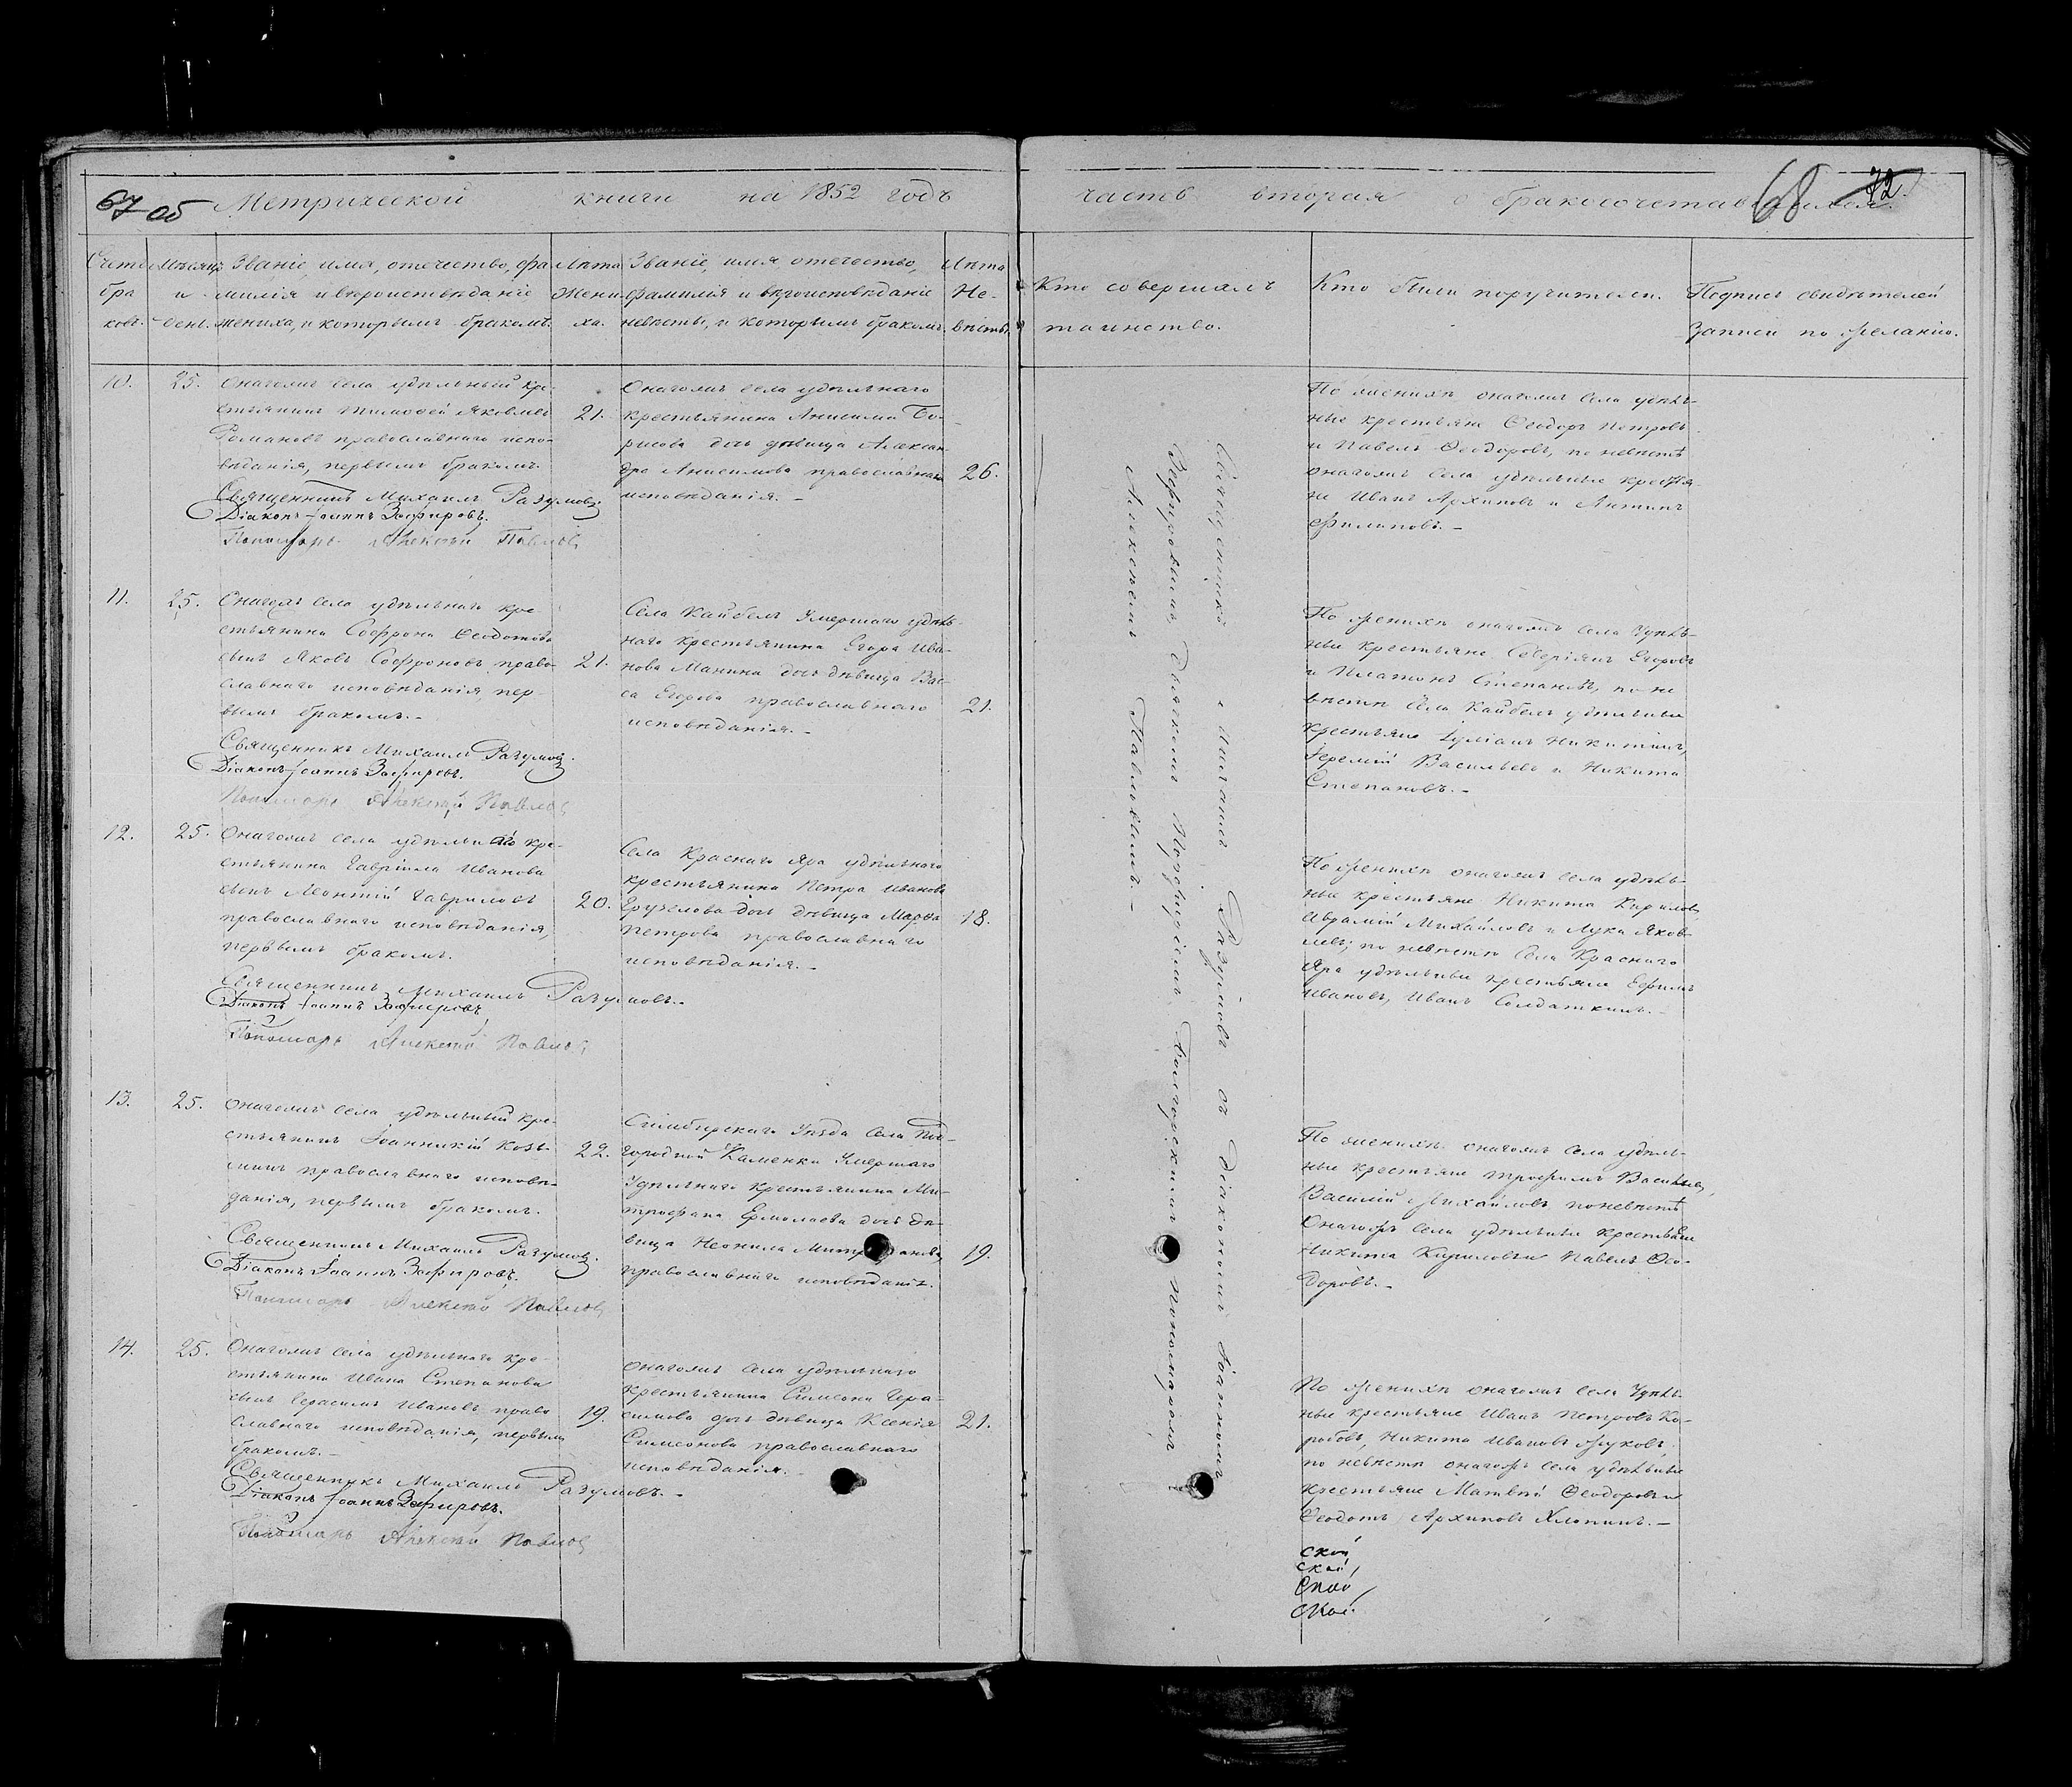 67 об
Метрической книги на 1852 годъ
часть вторая о бракосочетавшихся.
68
72.
Счетъ браковъ.
Мѣсяцъ и день.
Званіе, имя, отечество, фа
милія и вѣроисповѣданіе
жениха, и которымъ бракомъ.
Лѣта
Жени
ха.
Званіе, имя, отечество,
фамилія и вѣроисповѣданіе
невѣсты, и которымъ бракомъ.
Лѣта
Не-
вѣсты.
Кто совершалъ
таинство.
Кто были поручители.
Подпись свидѣтелей
записи по желанію.
10.
25.
Онагожъ села удѣльный кре-
стьянинъ Тимофей Яковлевъ
Романовъ православнаго испо-
вѣданія, первымъ бракомъ.
Священникъ Михаилъ Разумовъ
Діаконъ Іоаннъ Зефировъ.
Пономарь Алексѣй Павловъ
21.
Онагожъ села удѣльнаго
крестьянина Анисима Бо-
рисова дочь дѣвица Алексан
дра Анисимова православнаго
исповѣданія. -
26.
По женихѣ онагожъ села удѣль-
ные крестьяне Ѳеодоръ Петровъ
и Павелъ Ѳеодоровъ, по невѣстѣ
онагожъ села удѣльные крестья-
не Иванъ Архиповъ и Антипъ
Филиповъ. -
11.
25.
Онагожъ села удѣльнаго кре
стьянина Софрона Ѳеодотова
сынъ Яковъ Софроновъ право-
славнаго исповѣданія, пер-
вымъ бракомъ. -
Священникъ Михаилъ Разумовъ.
Діаконъ Іоаннъ Зефировъ.
Пономарь Алексѣй Павловъ
21.
Села Кайбелъ Умершаго удѣль-
наго крестьянина Егора Ива-
нова Манина дочь дѣвица Вас-
са Егорова православнаго
исповѣданія. -
21.
По женихѣ онагожъ села Удѣль-
ные крестьяне Северіянъ Егоровъ
и Платонъ Степановъ, по не
вѣстѣ села Кайбелъ удѣльные
крестьяне Іуліанъ Никитинъ,
Іеремій Васильевъ и Никита
Степановъ. -
12.
25.
Онагожъ села удѣльнаго кре-
стьянина Гавріила Иванова
сынъ Леонтій Гавриловъ
православнаго исповѣданія,
первымъ бракомъ.
Священникъ Михаилъ Разумовъ. -
Діаконъ Іоаннъ Зефировъ
Пономарь Алексѣй Павловъ
20.
Села Краснаго Яра удѣльнаго
крестьянина Петра Иванова
дочь дѣвица Марѳа
Петрова православнаго
исповѣданія. -
18.
По женихѣ онагожъ села удѣль-
ные крестьяне Никита Кириловъ
Аврамій Михайловъ и Лука Яков-
левъ; по невѣстѣ села Краснаго
Яра удѣльные крестьяне Ефимъ
Ивановъ, Иванъ Солдаткинъ. -
13.
25.
Онагожъ села удѣльный кре-
стьянинъ Іоанникій Козь-
минъ православнаго исповѣ-
данія, первымъ бракомъ.
Священникъ Михаилъ Разумовъ.
Діаконъ Іоаннъ Зефировъ.
Пономарь Алексѣй Павловъ
22.
Симбирскаго Уѣзда села Под-
городной Каменки Умершаго
Удѣльнаго крестьянина Ми-
трофана Ермолаева дочь дѣ-
вица Неонила Митрофанова,
православнаго исповѣданія.
19.
По женихѣ онагожъ села удѣль-
ные крестьяне Трофимъ Васильевъ,
Василій Михайловъ, по невѣстѣ
Онагожъ села удѣльные крестьяне
Никита Кириловъ и Павелъ Ѳео-
доровъ. -
14.
25.
Онагожъ села удѣльнаго кре-
стьянина Ивана Степанова
сынъ Герасимъ Ивановъ право
славнаго исповѣданія, первымъ
бракомъ. -
Священникъ Михаилъ Разумовъ. -
Діаконъ Іоаннъ Зефировъ.
Пономарь Алексѣй Павловъ
19.
Онагожъ села удѣльнаго
крестьянина Симеона Гера-
симова дочь дѣвица Ксенія
Симеонова православнаго
исповѣданія. -
21.
По женихѣ онагожъ села Удѣль-
ные крестьяне Иванъ Петровъ Ко-
робовъ, Никита Ивановъ Жуковъ.
по невѣстѣ онагожъ села удѣльные
крестьяне Матвѣй Ѳеодоровъ и
Ѳеодотъ Архиповъ Хлопинъ. -
Священникъ Михаилъ Разумовъ съ Діакономъ Іоанномъ
Зефировымъ Дьячкомъ Порфиріемъ пономаремъ
Алексѣемъ Павловымъ. -